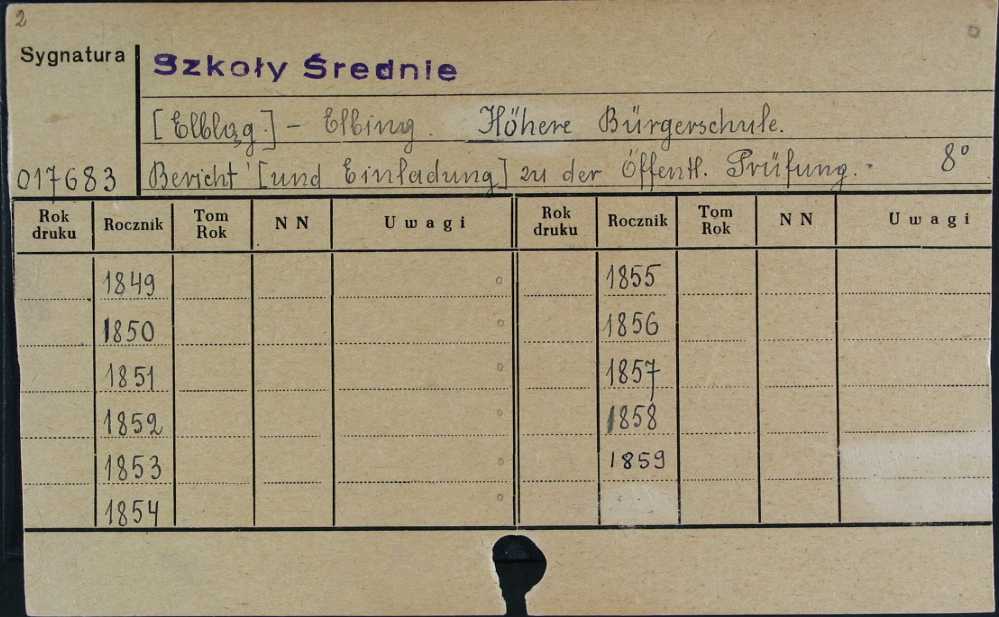 2
Sygnatura
Szkoły Średnie
[Elbląg.] - Elbing. Höhere Bürgerschule.
017683 Bericht [und Einladung] zu der Öffentl. Prüfung. - 8°
Rok druku Rocznik Tom Rok NN Uwagi Rok druku Rocznik Tom Rok NN Uwagi
1849 1855
1850 1856
1851 1857
1852 1858
1853 1859
1854